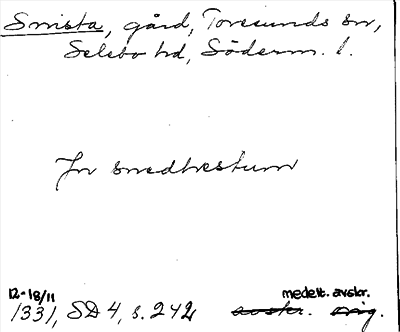 Smista, gård, Toresunds sn,
Selebo hd, Söderm. l.
Jn smedhestum
12-18/11 medelt. avskr.
1331, SD 4, s. 242 avskr. orig.